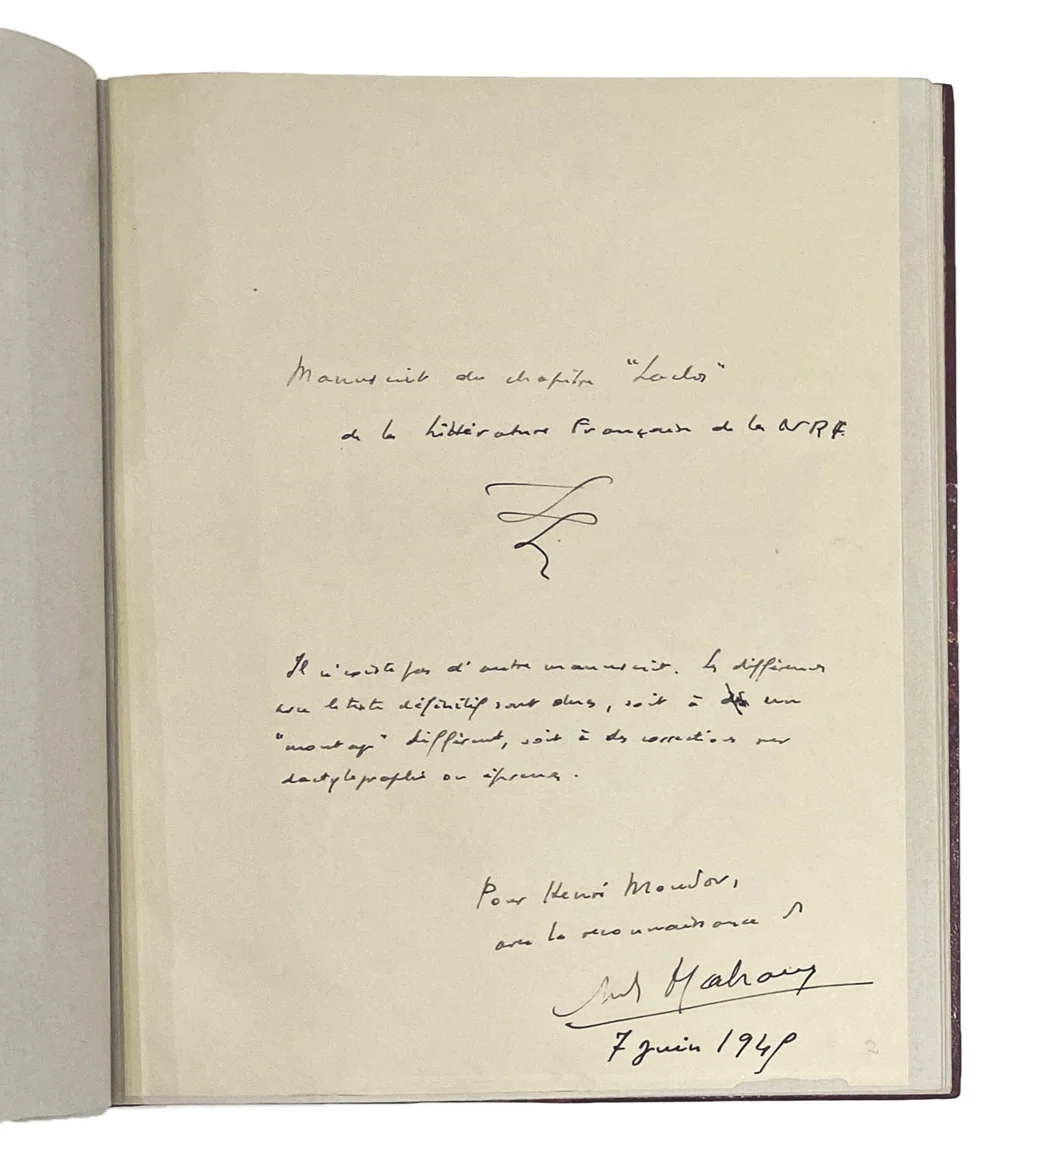 Manuscrit du chapitre "Laclos"
de la Littérature Française de la NRF.
Il n'existe pas d'autre manuscrit. Les différences
avec le texte définitif sont dues, soit à un
"montage" différent, soit à des corrections sur
dactylographie ou épreuves.
Pour Henri Mondor,
avec la reconnaissance d'
André Malraux
7 juin 1945
2